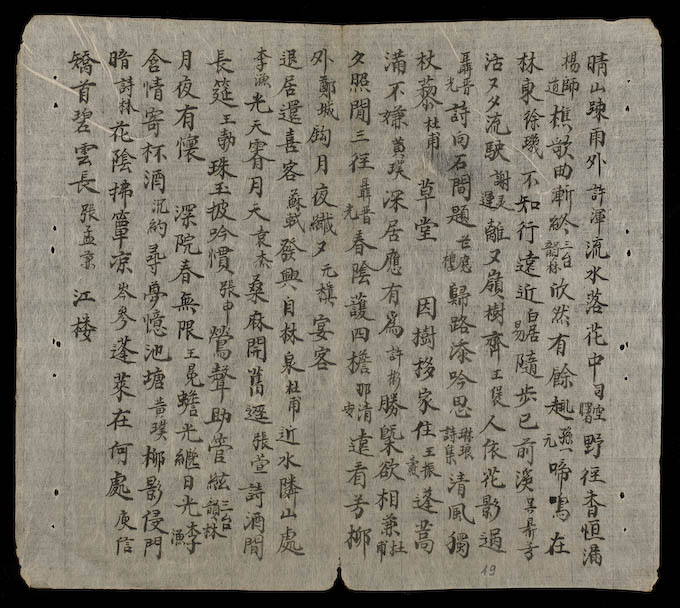 晴山疎雨外許渾流水落花中司空曙野徑杳恒滿
楊師道樵歌曲漸三台韻林欣然有餘趣孫一元啼鳥在
林東徐璣不知行遠近白居易隨步已前溪吴鼎芳
夕流駛謝灵運離〻嶺樹齊王人依花影過
聶晋光詩向石間題世應樓歸路添吟思琳琅詩集清風獨
杖藜杜甫草堂 因樹拶家住王振蓬蒿
滿不嫌黃璞深居應有為許彬勝槩欲相兼杜甫
夕照閒三徑聶晋光春陰護四檐邢清遠看芳柳
外鄭城鈎月夜纖〻元稹宴客
退居還喜客蘇軾發興自林泉杜甫近水隣山處
李漁光天霽月天袁杰桑麻開舊逕張萱詩酒開
長筵王勃珠玉披吟慣張申鶯聲助管絃三台韻林
月夜有懷 深院春無限王冕蟾光繼日光李漁
含情寄杯酒沉約尋夢憶池塘黃璞柳影侵門
暗詩林花陰拂簟凉岑參蓬萊在何處庾信
矯首碧雲長張孟兼江楼
19